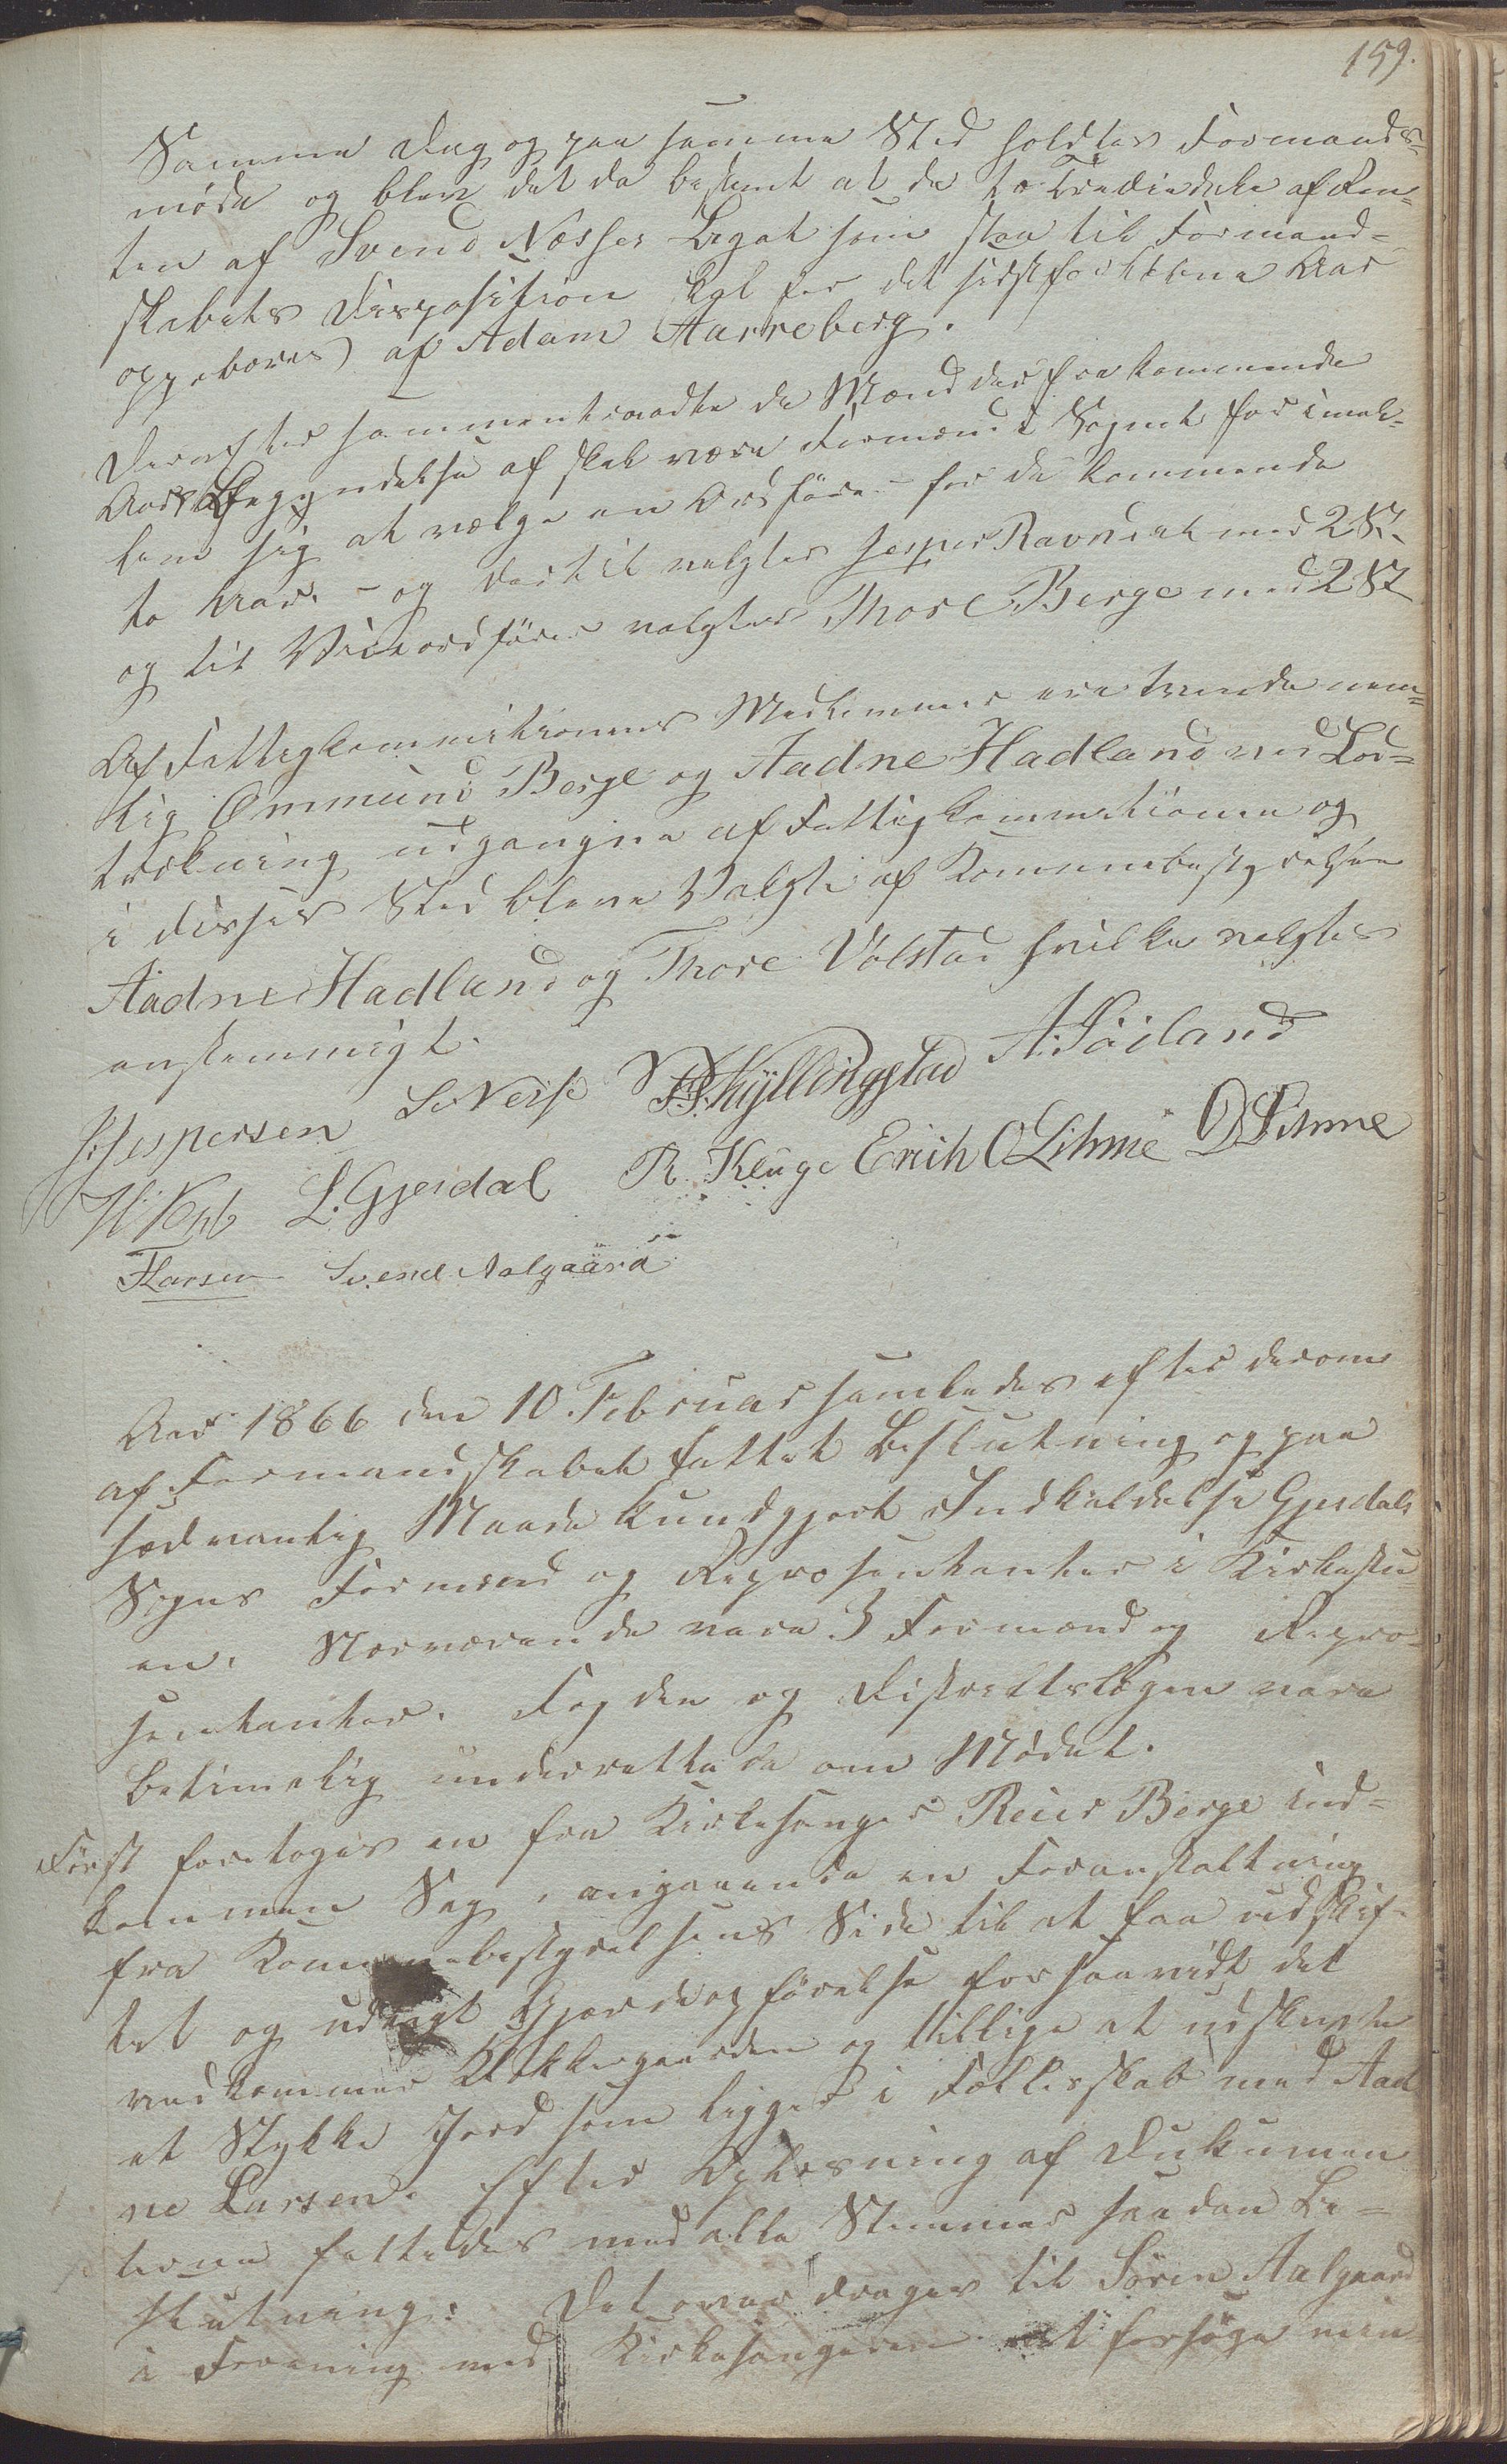 159.
Samme Dag og paa samme Sted holdtes Formands-
møde og blev det da bestemt at de to Trediedele af Ren-
ten af Svend Næsses Legat som staa til Formand-
skabets Disposition skal for det sidstforløbne Aar
oppebæres af Adam Aarreberg.
Derefter sammentraadte de Mænd der fra kommende
Aars Begyndelse af skal være Formænd i Sognet for imel-
lem sig at vælge en Ordfører for de kommende
to Aar. - og dertil valgtes Jesper Ravndal med 2 St.
og til Viceordfører valgtes Thore Berge med 2 St
Af Fattigkommitionens Medlemmer ere tvende nem-
lig Ommund Berge og Aadne Hadland ved Lod-
trekning udgangne af Fattigkommitionen og
i disses Sted bleve Valgte af Kommunebestyrelsen
Aadne Hadland og Thore Vølstad hvilke valgtes
enstemmigt.
J. Jespersen S. Nesse Kyllingstad A. Søiland
L. Gjesdal R. Kluge Erich O Limme O Limme
TLarsen Svend Aalgaard
Aar 1866 den 10. Februar samledes efter derom
af Formandskabet fattet Beslutning og paa
sædvanlig Maade kundgjort Indkaldelse Gjesdals
Sogns Formænd og Repræsentanter i Kirkestu-
en. Nærværende vare 3 Formænd og Repræ-
sentanter. Fogden og Distriktslægen vare
betimelig underrettede om Mødet.
Først foretoges en fra Kirkesanger Reier Berge ind-
kommen Sag, angaaende en Foranstaltning
fra Kommunebestyrelsens Side til at faa udskif-
tet og udlagt Gjerdeopførelse forsaavidt det
vedkommer Klokkergaarden og tillige at udskifte
et Stykke Jord som ligger i Fællesskab med Aad
ne Larsen. Efter Oplæsning af Dukumen
terne fattedes med alle Stemmer saadan Be-
slutning: Det overdrages til Sören Aalgaard
i Forening med Kirkesangeren at forsøge min